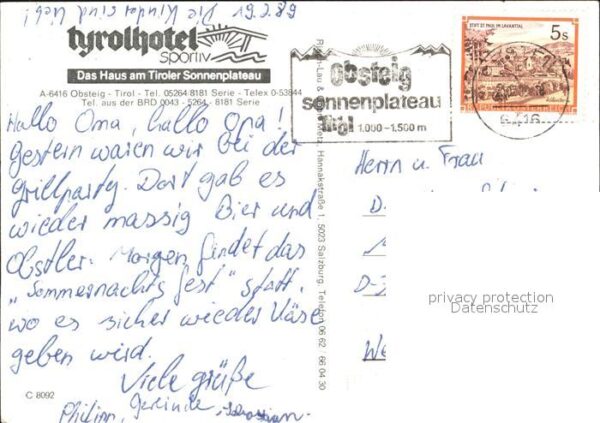 tyrolhotel
sportiv
Das Haus am Tiroler Sonnenplateau
A-6416 Obsteig - Tirol - Tel. 05264-8181 Serie - Telex 0-53844
Tel. aus der BRD 0043 - 5264 - 8181 Serie
Hallo Oma, hallo Opa!
Gestern waren wir bei der
Grillparty. Dort gab es
wieder massig Bier und
Obstler. Morgen findet das
„Sommernachtsfest" statt,
wo es sicher wieder Käse
geben wird.
Viele Grüße
Philipp,
C 8092
Die Kinder sind lieb!
Metz, Hannakstraße 1, 5023 Salzburg, Telefon 06 62 66 04 30
obsteig
sonnenplateau
tirol 1.000-1.500 m
STIFT ST. PAUL IM LAVANTTAL
5 S
6416
Herrn u. Frau
D-
privacy protection
Datenschutz
We